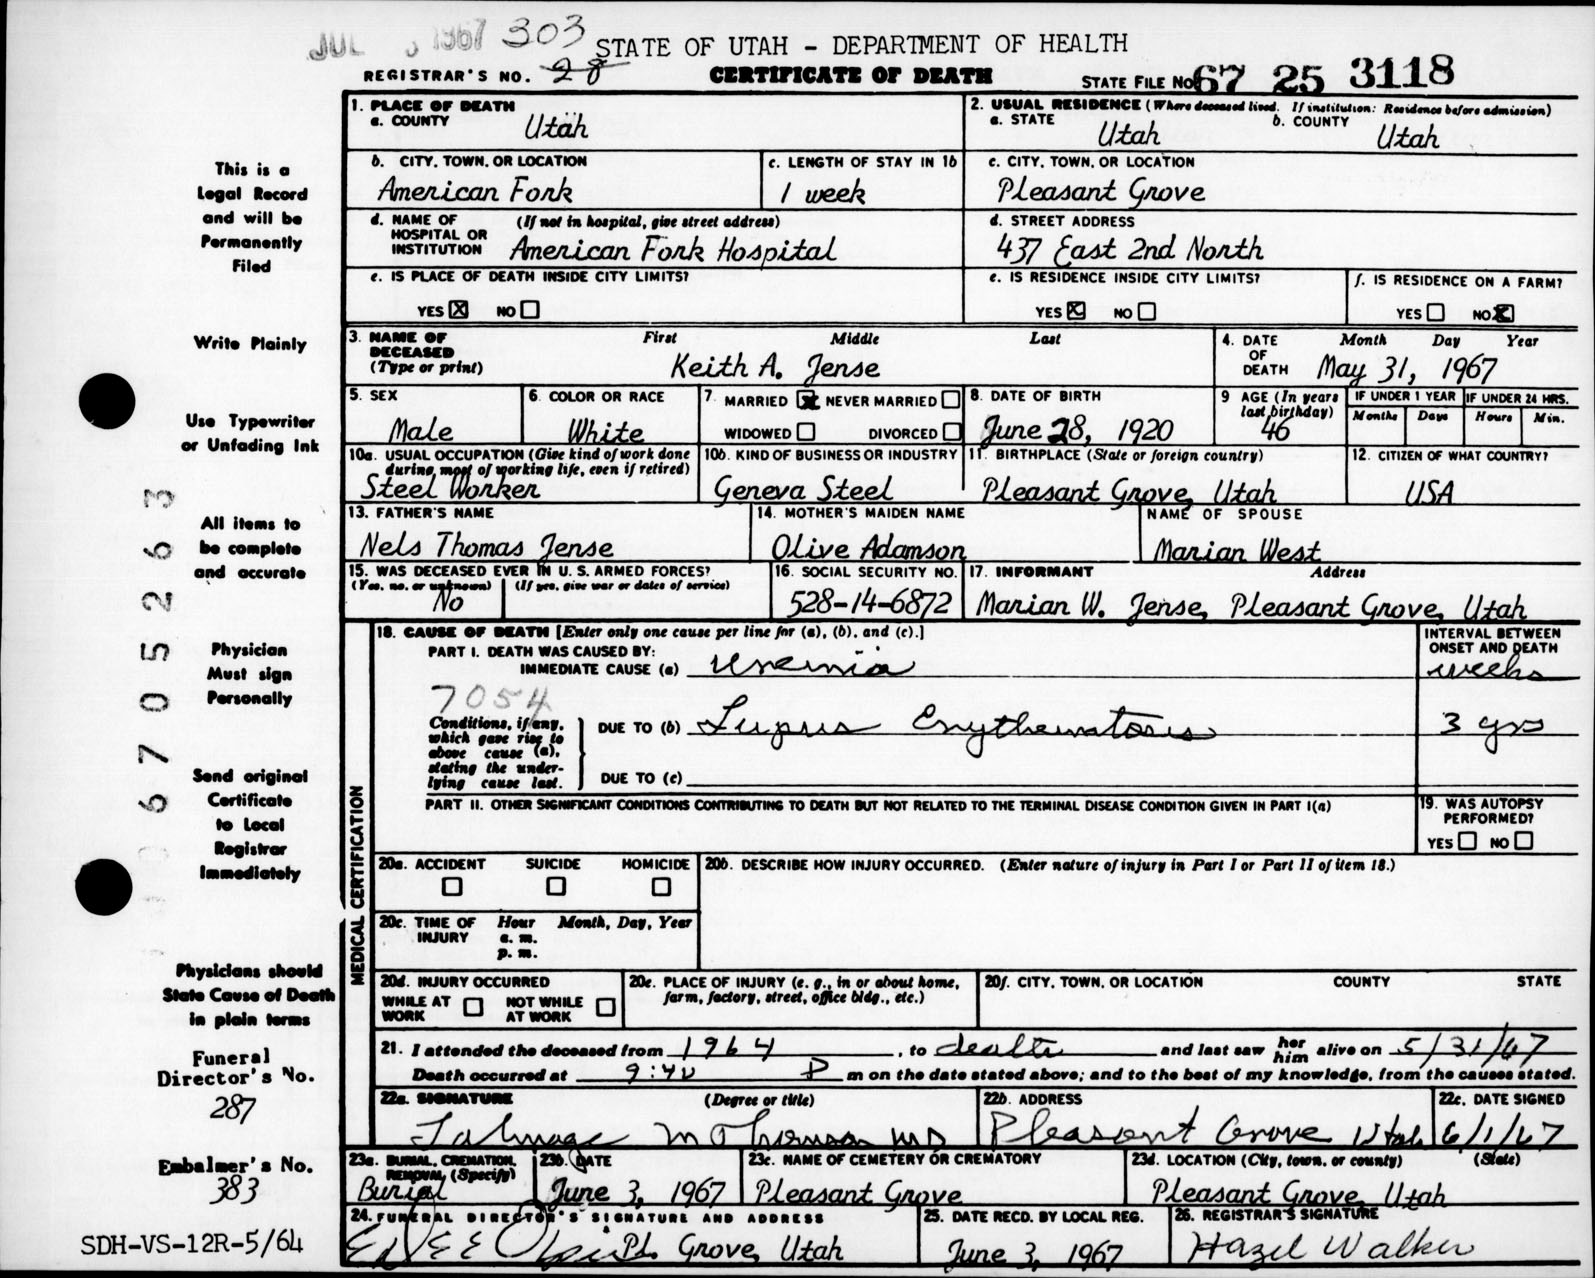 JUL 1967 303 STATE OF UTAH - DEPARTMENT OF HEALTH
REGISTRAR'S NO. 28 CERTIFICATE OF DEATH STATE FILE NO. 67 25 3118
1. PLACE OF DEATH
a. COUNTY Utah
2. USUAL RESIDENCE (Where deceased lived. If institution: Residence before admission)
a. STATE Utah b. COUNTY Utah
b. CITY, TOWN, OR LOCATION American Fork
c. LENGTH OF STAY IN 1b 1 week
c. CITY, TOWN, OR LOCATION Pleasant Grove
d. NAME OF HOSPITAL OR INSTITUTION (If not in hospital, give street address) American Fork Hospital
d. STREET ADDRESS 437 East 2nd North
e. IS PLACE OF DEATH INSIDE CITY LIMITS?
YES NO
e. IS RESIDENCE INSIDE CITY LIMITS?
YES NO
f. IS RESIDENCE ON A FARM?
YES NO
3. NAME OF DECEASED (Type or print) First Middle Last
Keith A. Jense
4. DATE OF DEATH Month Day Year
May 31, 1967
5. SEX Male
6. COLOR OR RACE White
7. MARRIED NEVER MARRIED
WIDOWED DIVORCED
8. DATE OF BIRTH June 28, 1920
9 AGE (In years last birthday) 46
IF UNDER 1 YEAR Months Days
IF UNDER 24 HRS. Hours Min.
10a. USUAL OCCUPATION (Give kind of work done during most of working life, even if retired)
Steel Worker
10b. KIND OF BUSINESS OR INDUSTRY
Geneva Steel
11. BIRTHPLACE (State or foreign country)
Pleasant Grove, Utah
12. CITIZEN OF WHAT COUNTRY?
USA
13. FATHER'S NAME
Nels Thomas Jense
14. MOTHER'S MAIDEN NAME
Olive Adamson
NAME OF SPOUSE
Marian West
15. WAS DECEASED EVER IN U. S. ARMED FORCES?
(Yes, no, or unknown) (If yes, give war or dates of service)
No
16. SOCIAL SECURITY NO.
528-14-6872
17. INFORMANT Address
Marian W. Jense, Pleasant Grove, Utah
MEDICAL CERTIFICATION
18. CAUSE OF DEATH [Enter only one cause per line for (a), (b), and (c).]
PART I. DEATH WAS CAUSED BY:
IMMEDIATE CAUSE (a) Uremia
INTERVAL BETWEEN ONSET AND DEATH
weeks
7054
Conditions, if any, which gave rise to above cause (a), stating the underlying cause last.
DUE TO (b) Lupus Erythematosis 3 yrs
DUE TO (c)
PART II. OTHER SIGNIFICANT CONDITIONS CONTRIBUTING TO DEATH BUT NOT RELATED TO THE TERMINAL DISEASE CONDITION GIVEN IN PART I(a)
19. WAS AUTOPSY PERFORMED?
YES NO
20a. ACCIDENT SUICIDE HOMICIDE
20b. DESCRIBE HOW INJURY OCCURRED. (Enter nature of injury in Part I or Part II of item 18.)
20c. TIME OF INJURY Hour Month, Day, Year
a. m.
p. m.
20d. INJURY OCCURRED
WHILE AT WORK NOT WHILE AT WORK
20e. PLACE OF INJURY (e. g., in or about home, farm, factory, street, office bldg., etc.)
20f. CITY, TOWN, OR LOCATION COUNTY STATE
21. I attended the deceased from 1964, to death and last saw her him alive on 5/31/67
Death occurred at 9:40 P m on the date stated above; and to the best of my knowledge, from the causes stated.
22a. SIGNATURE (Degree or title)
Talmage M Thomson MD
22b. ADDRESS
Pleasant Grove Utah
22c. DATE SIGNED
6/1/67
23a. BURIAL, CREMATION, REMOVAL (Specify)
Burial
23b. DATE
June 3, 1967
23c. NAME OF CEMETERY OR CREMATORY
Pleasant Grove
23d. LOCATION (City, town, or county) (State)
Pleasant Grove, Utah
24. FUNERAL DIRECTOR'S SIGNATURE AND ADDRESS
Pl. Grove, Utah
25. DATE RECD. BY LOCAL REG.
June 3, 1967
26. REGISTRAR'S SIGNATURE
Hazel Walker
This is a
Legal Record
and will be
Permanently
Filed
Write Plainly
Use Typewriter
or Unfading Ink
All items to
be complete
and accurate
Physician
Must sign
Personally
Send original
Certificate
to Local
Registrar
Immediately
Physicians should
State Cause of Death
in plain terms
Funeral
Director's No.
287
Embalmer's No.
383
SDH-VS-12R-5/64
6705263